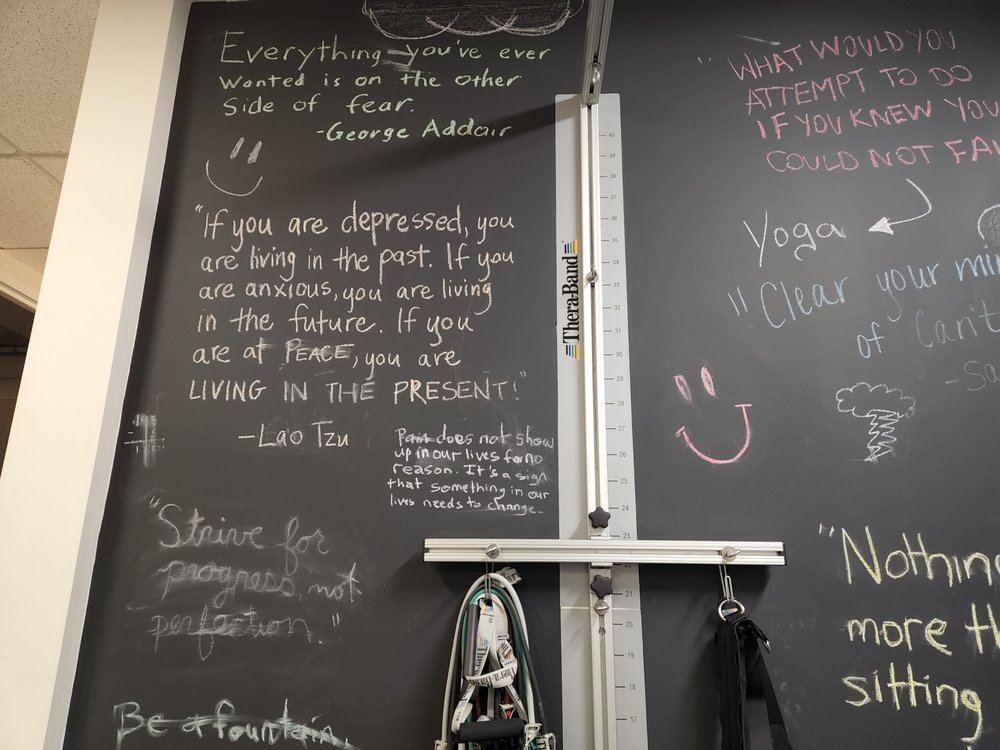 Everything you've ever
wanted is on the other
side of fear.
-George Addair
"If you are depressed, you
are living in the past. If you
are anxious, you are living
in the future. If you
are at PEACE, you are
LIVING IN THE PRESENT!"
-Lao Tzu
Pain does not show
up in our lives for no
reason. It's a sign
that something in our
lives needs to change.
"Strive for
progress, not
perfection."
Be a fountain,
Thera-Band
40
39
38
37
36
35
34
33
32
31
30
29
28
27
26
25
24
23
22
21
20
19
18
17
Thera-Band
"WHAT WOULD YOU
ATTEMPT TO DO
IF YOU KNEW YOU
COULD NOT FAI
Yoga
"Clear your mi
of Can't
-Sa
"Nothin
more th
sitting